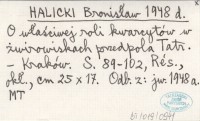 HALICKI Bronisław 1948 d.
O właściwej roli kwarcytów w
żwirowiskach przedpola Tatr.
- Kraków. S. 89-102, Rés.,
okl., cm 25 x 17. Odb. z: jw. 1948 a.
MT